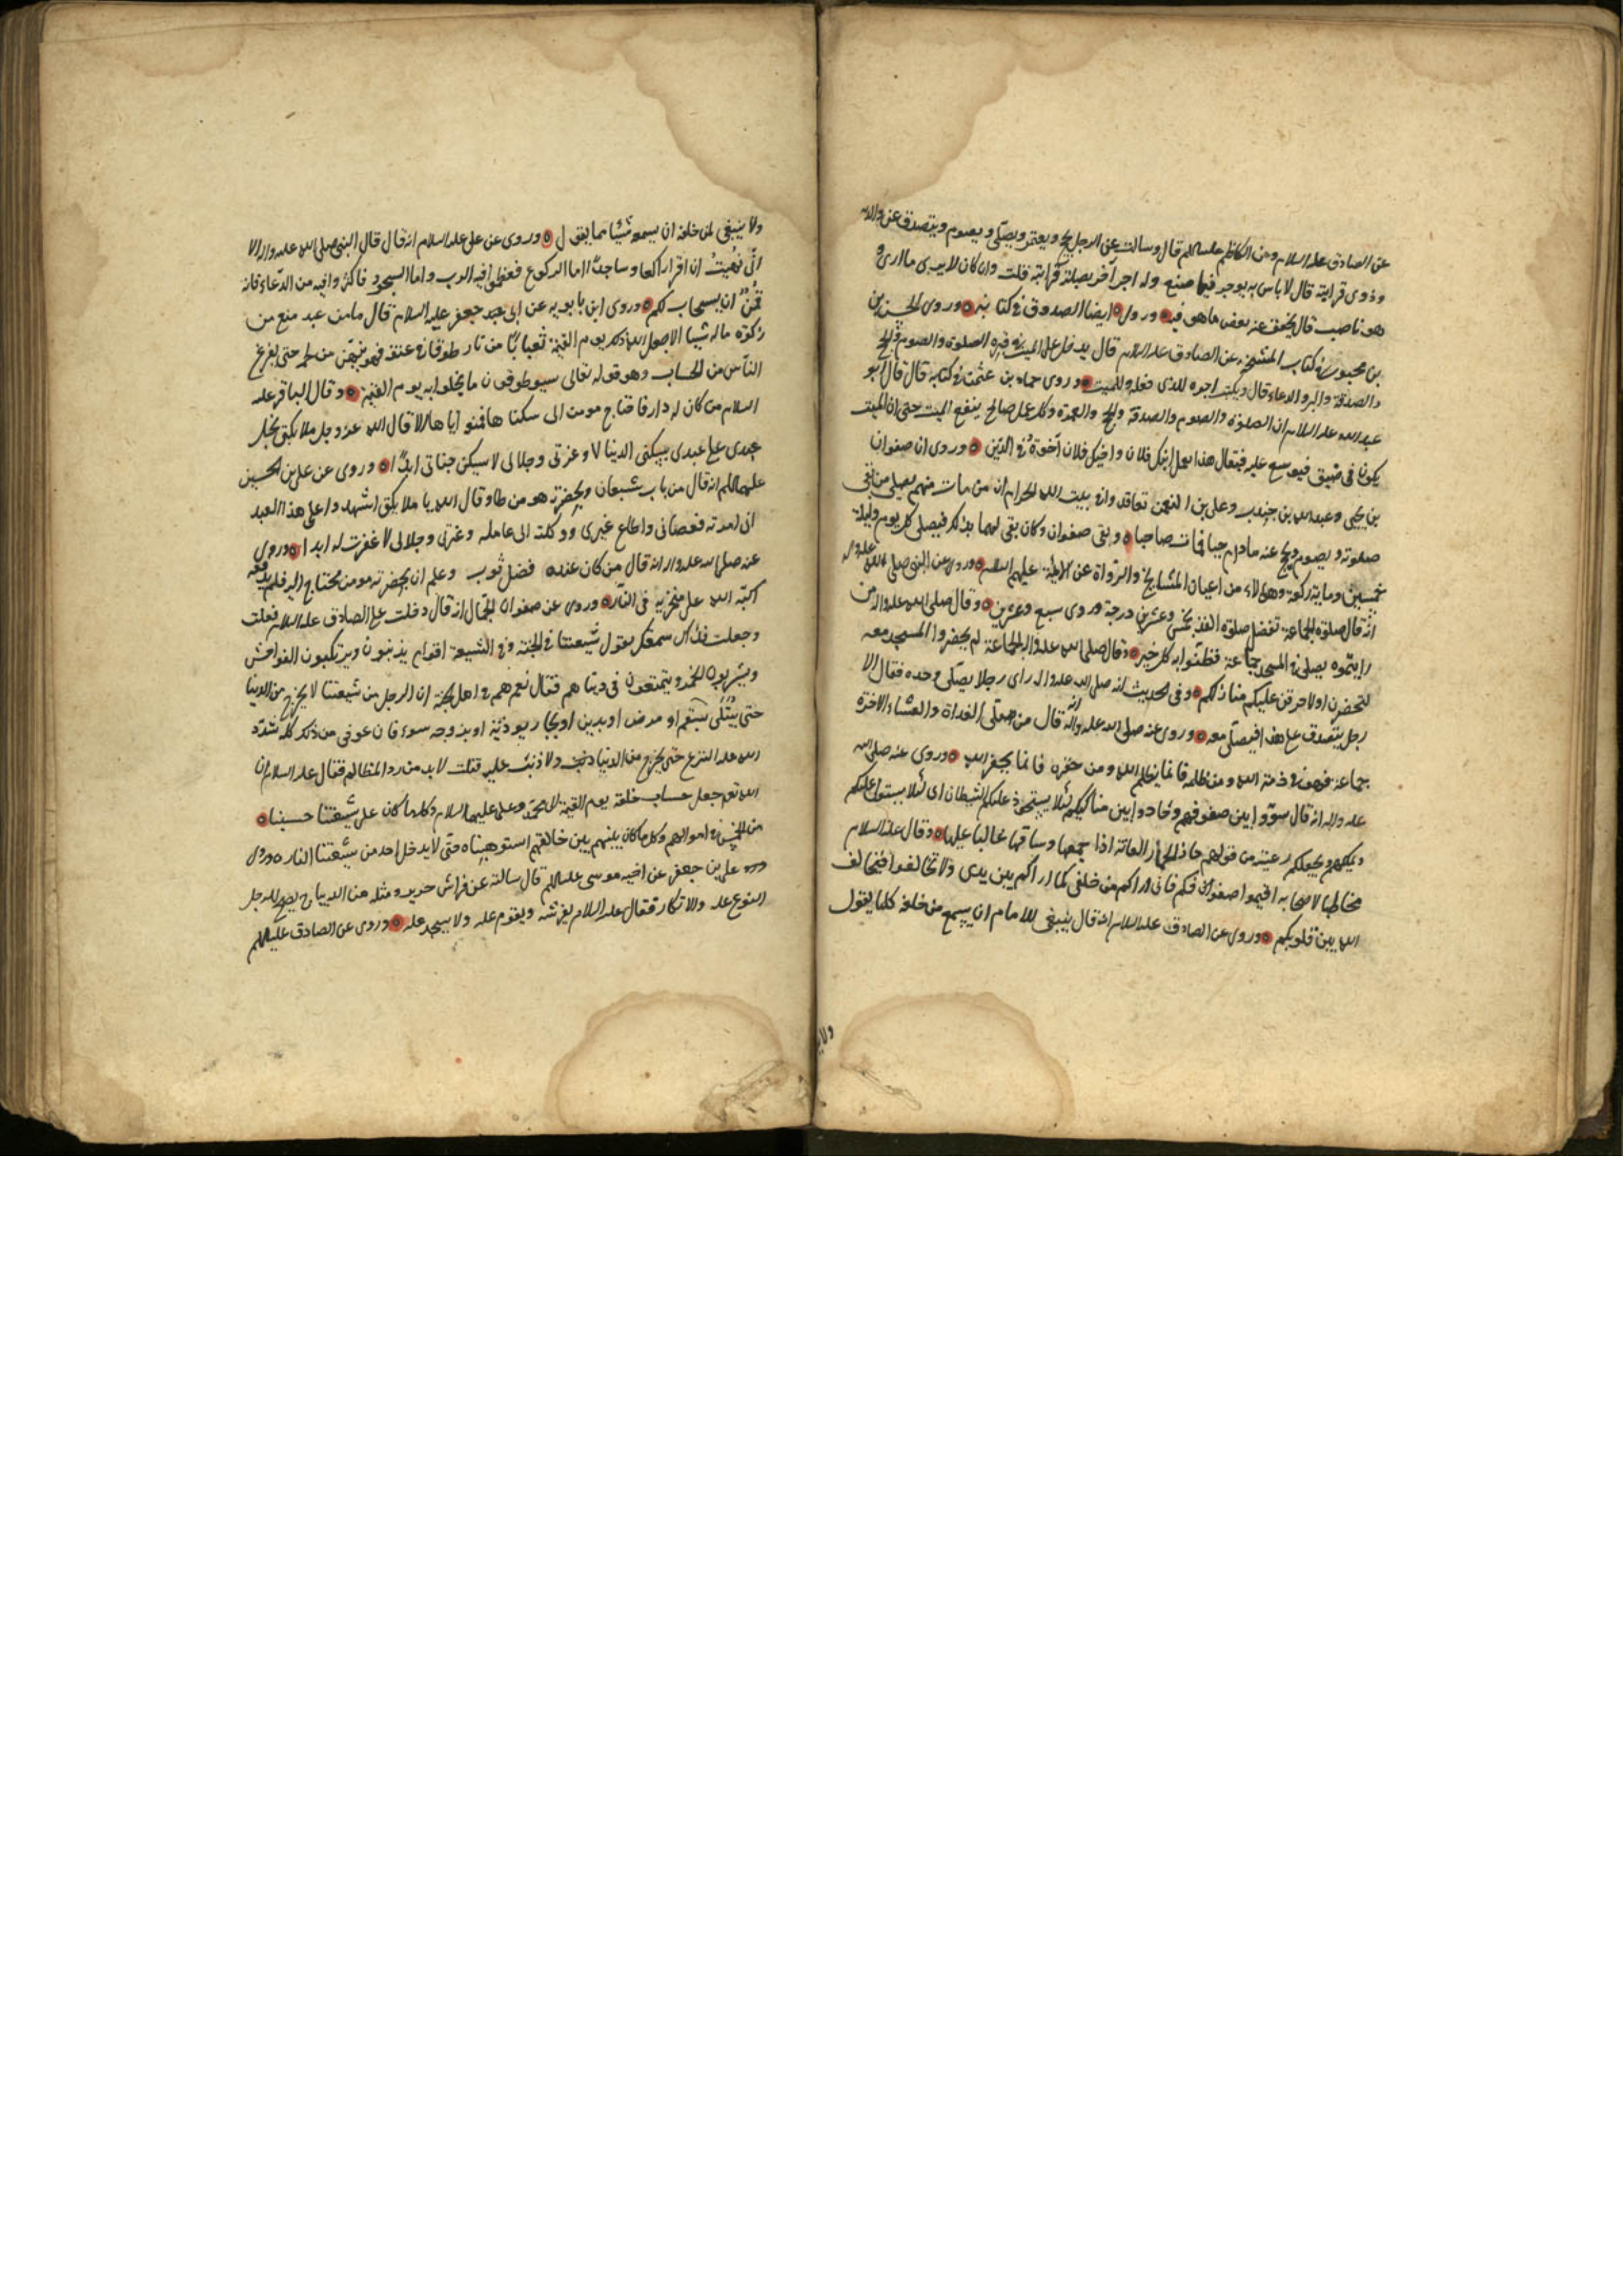 عن الصادق عليه السلام ومن الكاظم عليه السلم قال وسالته عن الرجل يحج ويعتمر ويصلي ويصوم ويتصدق عن والديه
وذوي قرابته قال لا باس به يوجر فيما صنع وله اجر آخر بصلة قرابته قلت وان كان لا يرى ما ارى و
هو ناصب قال يخفف عنه بعض ما هو فيه ورول ايضا الصدوق في كتابه وروى الحسن بن
بن محبوب في كتاب المشيخه عن الصادق عليه السلام قال يدخل على الميت في قبره الصلوة والصوم والحج
والصدقة والبر والدعاء قال ويكتب اجره للذي فعله وللميت وروى حماد بن عثمن في كتابه قال قال ابو
عبد الله عليه السلام ان الصلوة والصوم والصدقة والحج والعمرة وكل عمل صالح ينفع الميت حتى ان الميت
يكون في ضيق فيوسع عليه فيقال هذا بعمل ابنك فلان واخيك فلان اخوة في الدين وروى ان صفوان
بن يحيى وعبد الله بن جندب وعلى بن النعمن تعاقدوا في بيت الله الحرام ان من مات منهم يصلي من بقى
صلوته ويصوم ويحج عنه مادام حيا فمات صاحباه وبقى صفوان وكان يفى لهما بذلك فيصلى كل يوم وليلة
خمسين وماية ركعة وهؤلاء من اعيان المشايخ والرواة عن الايمة عليهم السلام وروى عن النبي صلى الله عليه واله
انه قال صلوة الجماعة تفضل صلوة الفذ بخمس وعشرين درجة وروى سبع وعشرين وقال صلى الله عليه واله من
رايتموه يصلى في المسجد جماعة فظنوا به كل خير وقال صلى الله عليه واله الجماعة لم يحضروا المسجد معه
لتحضرن اولاحرقن عليكم منازلكم وفي الحديث انه صلى الله عليه واله راى رجلا يصلى وحده فقال الا
رجل يتصدق على هذا فيصلى معه وروى عنه صلى الله عليه واله انه قال من صلى الغداة والعشاء الاخرة
جماعة فهو في ذمة الله ومن ظلمه فانما يظلم الله ومن حقره فانما يحقر الله وروى عنه صلى الله
عليه واله انه قال سووا بين صفوفهم وحاذوا بين مناكبكم لئلا يستحوذ عليكم الشيطان اى لئلا يستولى عليكم
ويملكهم ويجعلكم رعيته من قولهم حاذ الحمار العانة اذا جمعها وساقها غالبا عليها وقال عليه السلام
مخاطبا لاصحابه اقيموا صفوفكم فانى اراكم من خلفى كما اراكم بين يدى ولا تخالفوا فيخالف
الله بين قلوبكم وروى عن الصادق عليه السلام انه قال ينبغى للامام ان يسمع من خلفه كلما يقول
ولا ينبغى لمن خلفه ان يسمعه شيئا مما يقول وروى عن على عليه السلام انه قال قال النبي صلى الله عليه واله الا
انى نهيت ان اقرا راكعا وساجدا اما الركوع فعظموا فيه الرب واما السجود فاكثروا فيه من الدعاء فانه
قمن ان يستجاب لكم وروى ابن بابويه عن ابى عبد جعفر عليه السلام قال ما من عبد منع من
زكوة ماله شيئا الا جعل الله ذلك يوم القيمة ثعبانا من نار طوقا في عنقه فهو ينهش من لحمه حتى يفرغ
الناس من الحساب وهو قوله تعالى سيطوقون ما بخلوا به يوم القيمة وقال الباقر عليه
السلام من كان له دار فاحتاج مومن الى سكناها فمنعه اياها الا قال الله عز وجل ملايكتى بخل
عبدى على عبدى بسكنى الدنيا لا وعزتى وجلالى لا سيكن جناتى ابدا وروى عن على بن الحسين
عليهما السلم انه قال من بات شبعان وبحضرته مومن طاو قال الله يا ملايكتى اشهدوا على هذا العبد
انى امرته فعصانى واطاع غيرى ووكلته الى عامله وعزتى وجلالى لا غفرت له ابدا وروى
عنه صلى الله عليه واله انه قال من كان عنده فضل ثوب وعلم ان بحضرته مومن محتاج اليه فلم يدفعه
اكبه الله على منخريه في النار وروى عن صفوان الجمال انه قال دخلت على الصادق عليه السلام فقلت
وجعلت فداك سمعتك تقول شيعتنا في الجنة وفي الشيعة اقوام يذنبون ويرتكبون الفواحش
ويشربون الخمر ويتمتعون في دنياهم فقال نعم هم في اهل الجنة ان الرجل من شيعتنا لا يخرج من الدنيا
حتى يبتلى بسقم او مرض او بدين او بجار يوذيه او بزوجه سوء فان عوفى من ذلك كله شدد
الله عليه النزع حتى يخرج من الدنيا ولا ذنب عليه قلت لابد من رد المظالم فقال عليه السلام ان
الله تعم جعل حساب خلقه يوم القيمة الى محمد وعلى عليهما السلام وكلما كان على شيعتنا حسبناه
من الخمس في اموالهم وكل ما كان بينهم وبين خالقهم استوهبناه حتى لا يدخل احد من شيعتنا النار ورول
على بن جعفر عن اخيه موسى عليه السلم قال سالته عن فراش حرير ومثله من الديباج يصلح للرجل
النوم عليه والاتكاء فقال عليه السلام يفرشه ويقوم عليه ولا يسجد عليه وروى عن الصادق عليه السلم